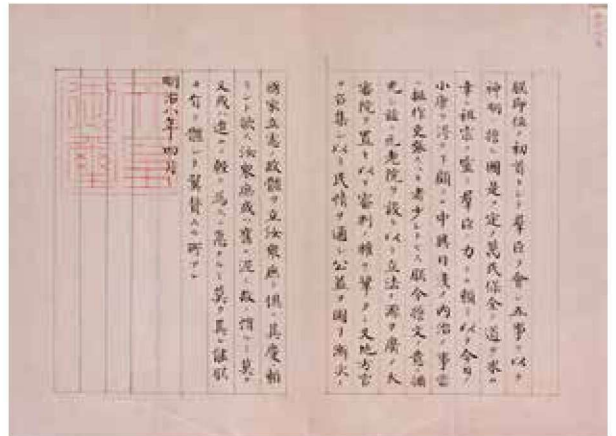 朕即位ノ初首トシテ羣臣ヲ會シ五事ヲ以テ
神明ニ誓ヒ國是ヲ定メ萬民保全ノ道ヲ求ム
幸ニ祖宗ノ靈ト羣臣ノ力トニ頼リ以テ今日ノ
小康ヲ得タリ顧ニ中興日浅ク内治ノ事當
ニ振作更張スヘキ者少シトセス朕今誓文ノ意ヲ擴
充シ茲ニ元老院ヲ設ケ以テ立法ノ源ヲ廣メ大
審院ヲ置キ以テ審判ノ權ヲ鞏クシ又地方官
ヲ召集シ以テ民情ヲ通シ公益ヲ圖リ漸次ニ
國家立憲ノ政體ヲ立テ汝衆庶ト倶ニ其慶ニ頼
ント欲ス汝衆庶或ハ舊ニ泥ミ故ニ慣ルヽコト莫ク
又或ハ進ムニ軽ク為スニ急ナルコト莫ク其レ能朕
カ旨ヲ體シテ翼賛スル所アレ
明治八年四月
天皇御璽